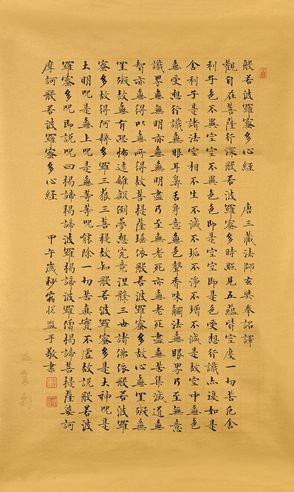 般若波羅蜜多心經 唐三藏法師玄奘奉詔譯
觀自在菩薩行深般若波羅蜜多時照見五蘊皆空度一切苦厄舍
利子色不異空空不異色色即是空空即是色受想行識亦復如是
舍利子是諸法空相不生不滅不垢不淨不增不減是故空中無色
無受想行識無眼耳鼻舌身意無色聲香味觸法無眼界乃至無意
識界無無明亦無無明盡乃至無老死亦無老死盡無苦集滅道無
智亦無得以無所得故菩提薩埵依般若波羅蜜多故心無罣礙無
罣礙故無有恐怖遠離顛倒夢想究竟涅槃三世諸佛依般若波羅
蜜多故得阿耨多羅三藐三菩提故知般若波羅蜜多是大神咒是
大明咒是無上咒是無等等咒能除一切苦真實不虛故說般若波
羅蜜多咒即說咒曰揭諦揭諦波羅揭諦波羅僧揭諦菩提薩婆訶
摩訶般若波羅蜜多心經 甲午歲秋 敬書